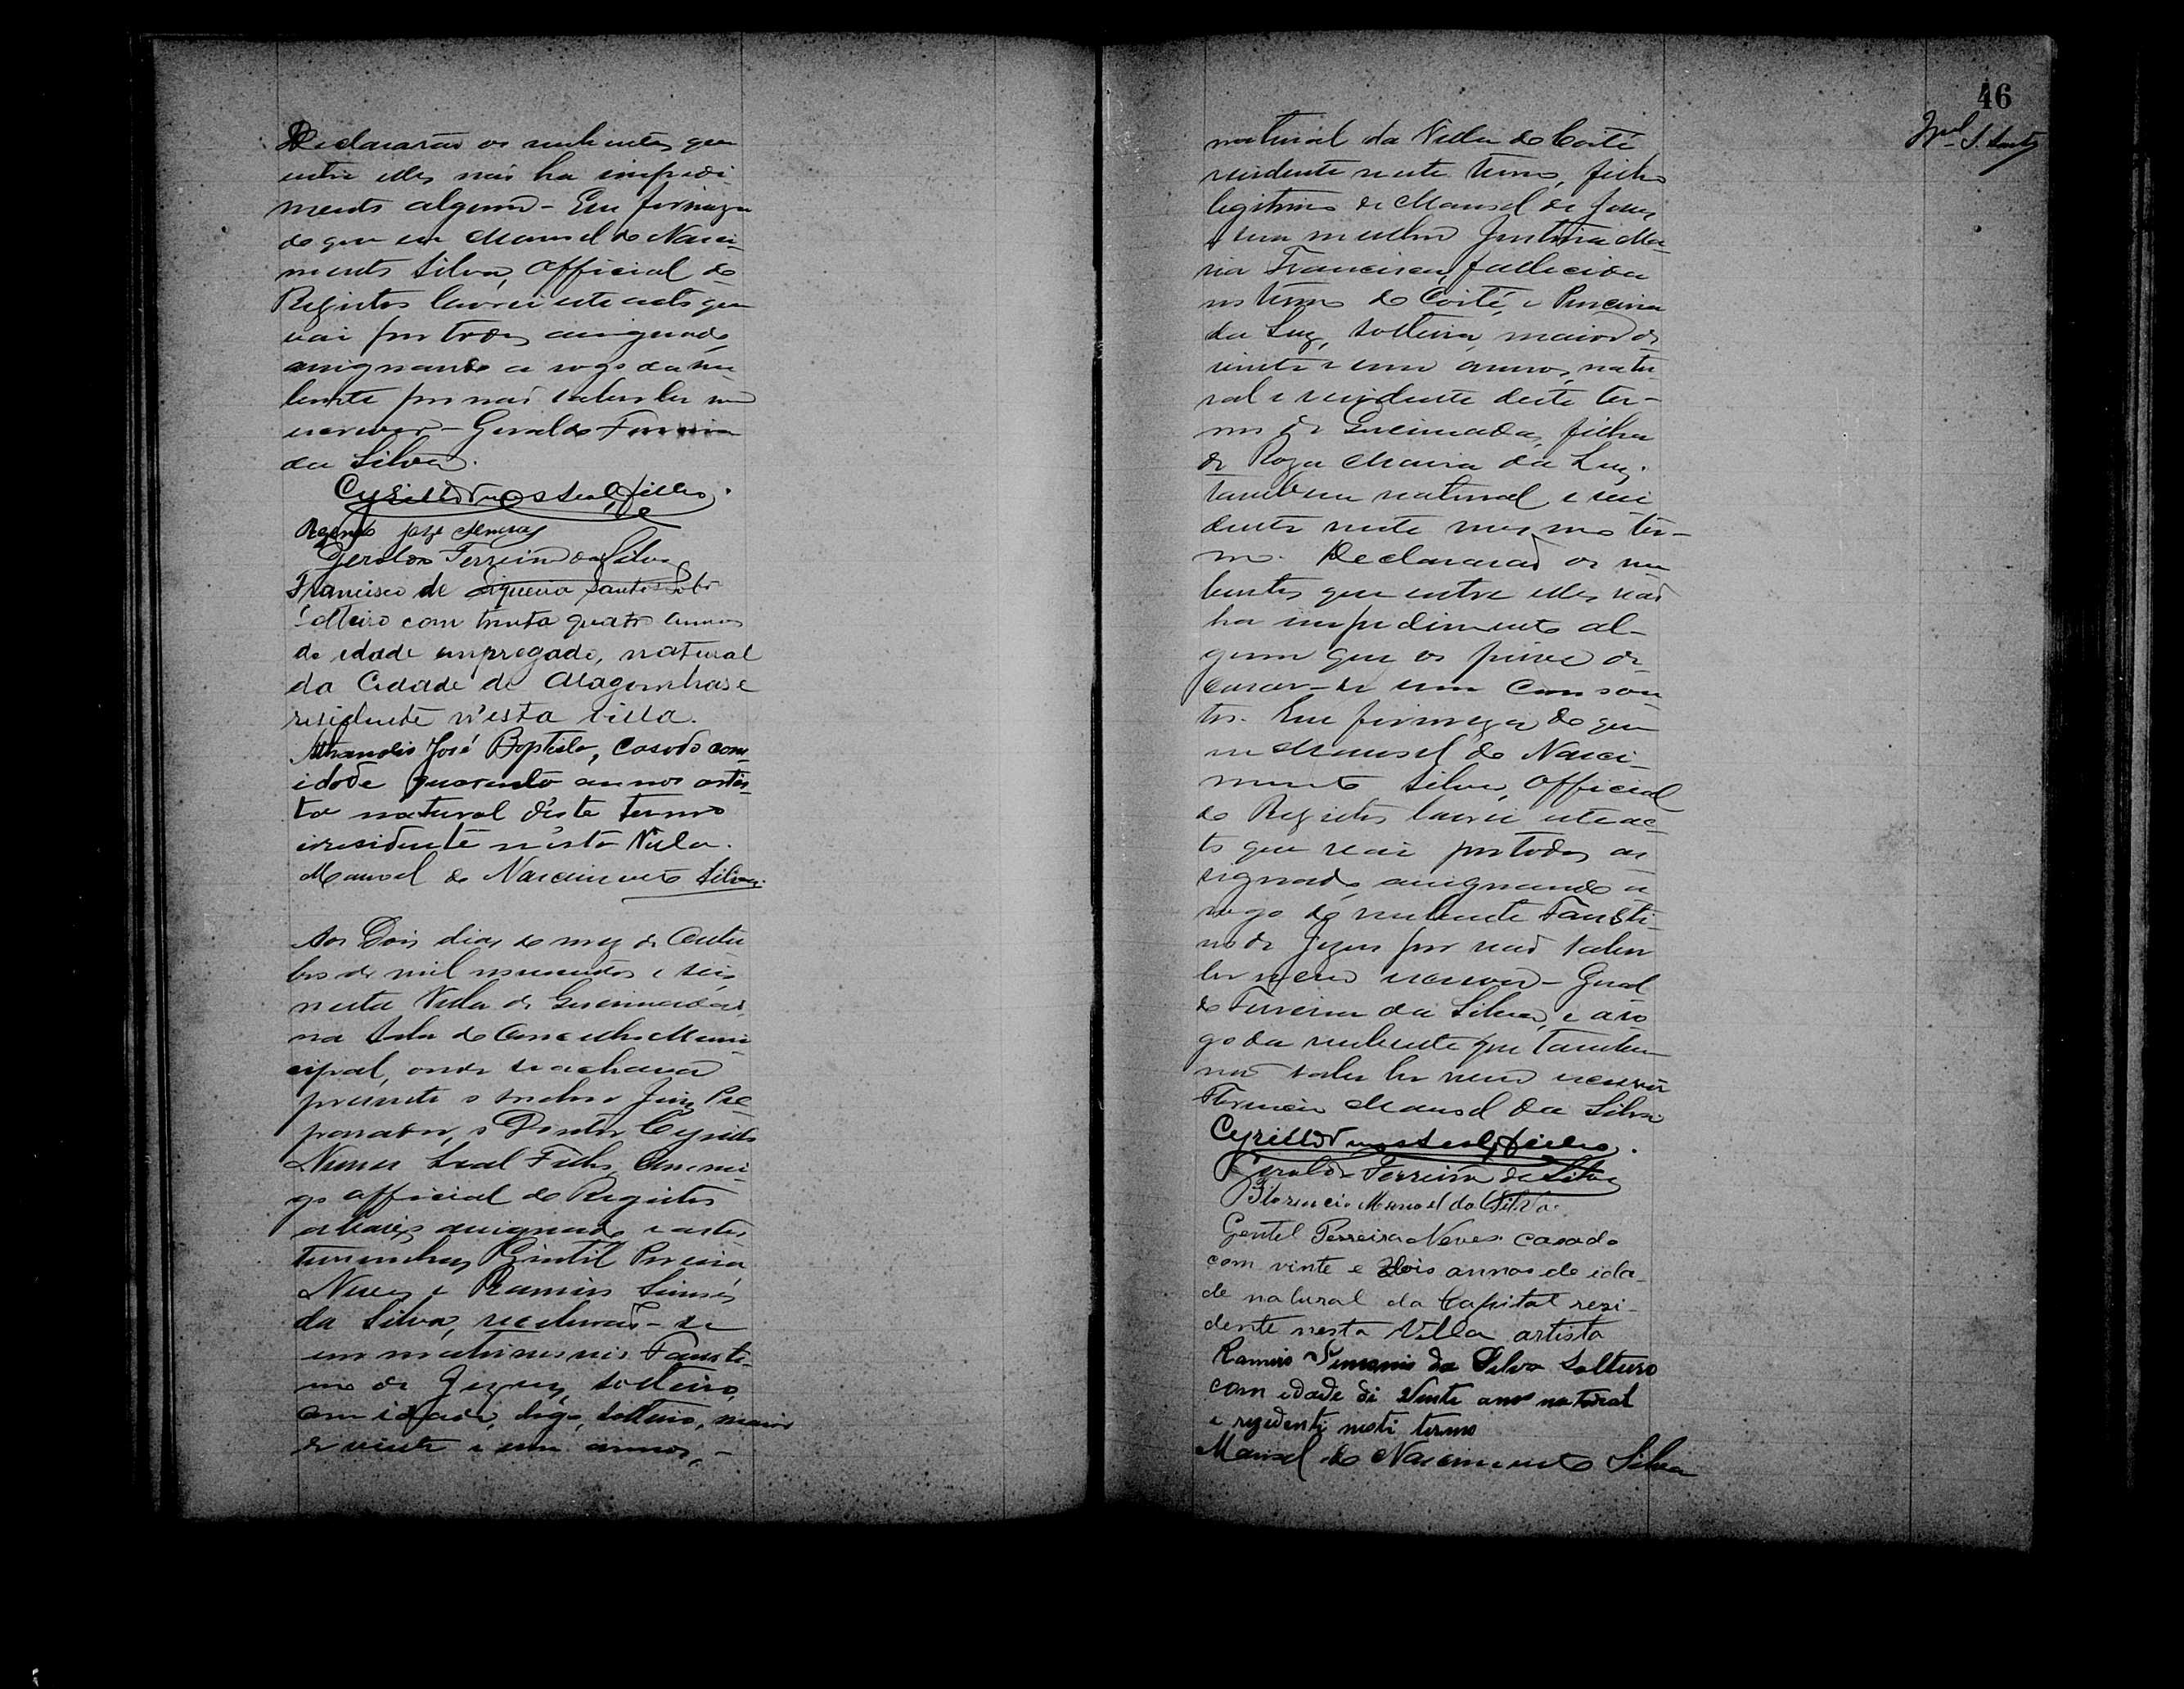 Declararão os nubentes que
entre elles não ha impedi-
mento algum - Em firmeza
do que eu Manoel do Nasci-
mento Silva, Official do
Registro lavrei este acto que
vai por todos assignado,
assignando a rogo da nu-
bente por não saber ler nem
escrever - Geraldo Ferreira
da Silva.
Cyrillo Nunes Leal Filho.
José
Geraldo Ferreira da Silva
Francisco de Siqueira Santos
Solteiro com trinta quatro annos
de idade empregado, natural
da Cidade de Alagoinhas e
residente n'esta villa.
José Baptista, Casado com
idade quarenta annos artis-
ta natural d'este termo
i residente n'esta Villa.
Manoel do Nascimento Silva.
Aos Dois dias do mez de Outu
bro de mil novecentos e seis
nesta Villa de Queimadas,
na Sala do Conselho Muni
cipal, onde se achava
presente o senhor Juiz Pre
parador, o Doutor Cyrillo
Nunes Leal Filho, commi
go official do Registro
abaixo assignado e as tes
temunhas Gentil Pereira
Neves e Ramiro Simões
da Silva, receberão-se
em matrimonio Fausti-
no de Jezus, solteiro,
com idade, digo, solteiro, maior
de vinte e um annos,-
46
natural da Villa do Coité
residente neste termo, filho
legitimo de Manoel de Jesus
e sua mulher Maria
Francisca, fallecida
no termo do Coité, e
da Luz, solteira, maior de
vinte e um annos, natu-
ral e residente deste ter-
mo de Queimadas, filha
de Roza Maria da Luz,
tambem natural e resi
dente neste mesmo ter-
mo. Declararão os nu
bentes que entre elles não
ha impedimento al-
gum que os prive de
casar-se um com ou
tro. Em firmeza do que
eu Manoel do Nasci-
mento Silva, Official
do Registro lavrei este ac-
to que vai por todos as
signado, assignando a
rogo do nubente Fausti-
no de Jezus por não saber
ler nem escrever - Geral
do Ferreira da Silva, e a ro
go da nubente que tambem
não sabe ler nem escrever
Florencio Manoel da Silva.
Cyrillo Nunes Leal Filho.
Geraldo Ferreira da Silva
Florencio Manoel da Silva.
Gentil Perreira Neves. Casado
com vinte e dois annos de ida-
de natural da Capital rezi-
dente nesta Villa artista
Ramiro Simonis da Silva Solteiro
com idade di Vinte ano natural
e rezidenti nesti termo
Manoel do Nascimento Silva